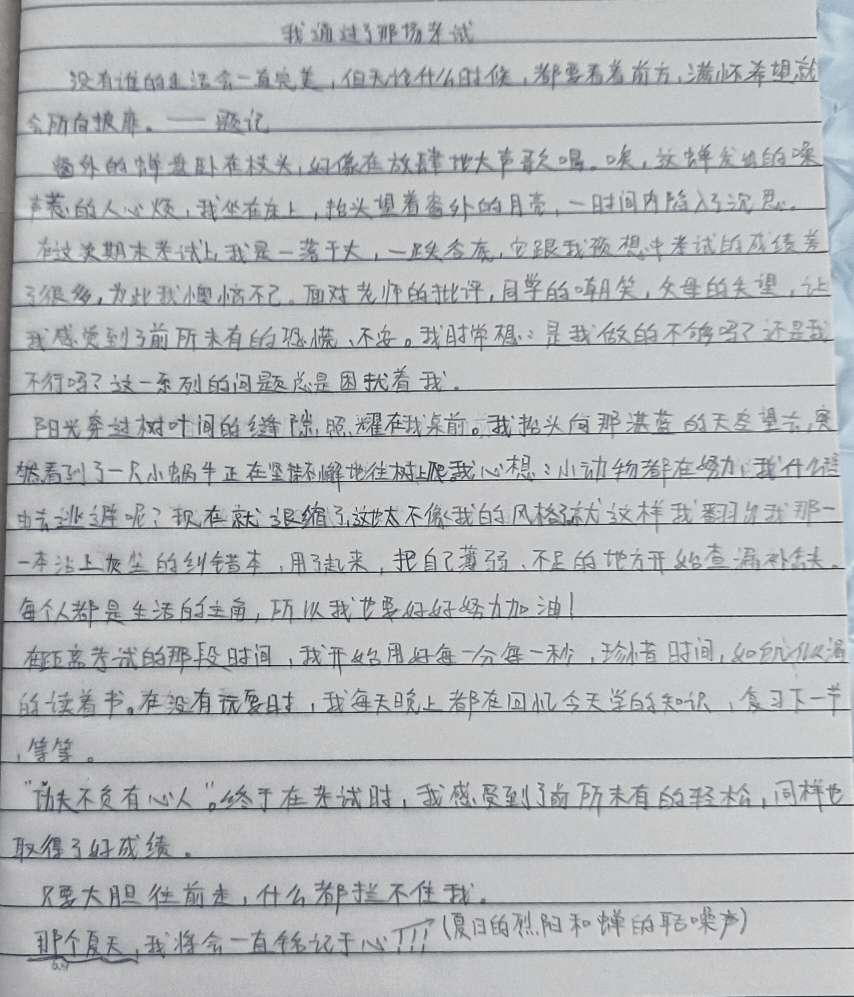 我通过了那场考试
没有谁的生活会一直完美,但无论什么时候,都要看着前方,满怀希望就
会所向披靡。——题记
窗外的蝉盘卧在枝头,好像在放肆地大声歌唱。唉,这蝉发出的噪
声惹的人心烦,我坐在床上,抬头望着窗外的月亮,一时间内陷入了沉思。
在这次期末考试上,我是一落千丈,一跌谷底,它跟我预想中考试的成绩差
了很多,为此我懊恼不已。面对老师的批评,同学的嘲笑,父母的失望,让
我感觉到了前所未有的恐慌、不安。我时常想:是我做的不够吗?还是我
不行吗?这一系列的问题总是困扰着我。
阳光穿过树叶间的缝隙,照耀在我桌前。我抬头向那湛蓝的天空望去,突
然看到了一只小蜗牛正在坚持不懈地往树上爬我心想:小动物都在努力,我什么理
由去逃避呢?现在就退缩了,这太不像我的风格了就这样我翻出我那一
一本沾上灰尘的纠错本,用了起来,把自己薄弱、不足的地方开始查漏补缺。
每个人都是生活的主角,所以我也要好好努力加油!
在距离考试的那段时间,我开始用好每一分每一秒,珍惜时间,如饥似渴
的读着书。在没有玩耍时,我每天晚上都在回忆今天学的知识,复习下一节
,等等。
“功夫不负有心人”。终于在考试时,我感受到了前所未有的轻松,同样也
取得了好成绩。
只要大胆往前走,什么都拦不住我。
那个夏天,我将会一直铭记于心!!!(夏日的烈阳和蝉的聒噪声)